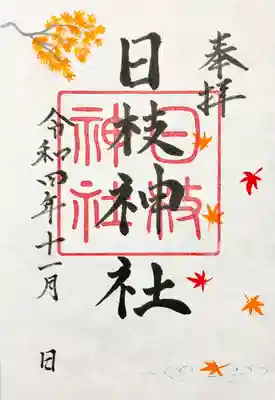 奉拝
日枝神社
日枝神社
令和四年十一月 日